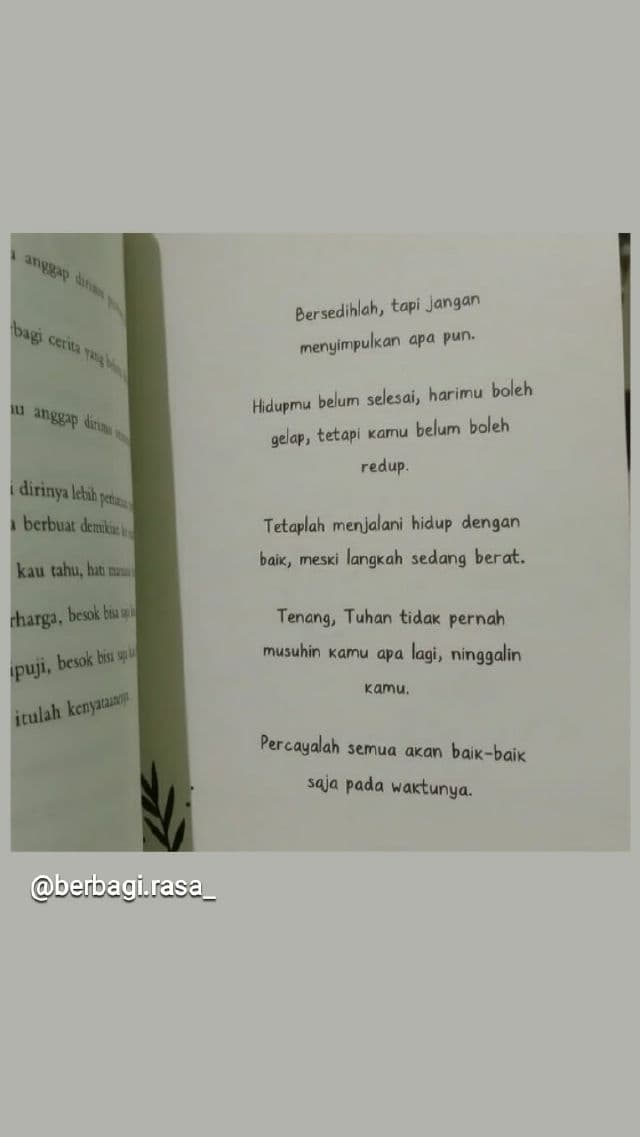 anggap
bagi cerita yang
anggap
dirinya lebih
berbuat demikian
kau tahu, hati
besok bisa
besok bisa
itulah kenyataannya.
Bersedihlah, tapi jangan
menyimpulkan apa pun.
Hidupmu belum selesai, harimu boleh
gelap, tetapi kamu belum boleh
redup.
Tetaplah menjalani hidup dengan
baik, meski langkah sedang berat.
Tenang, Tuhan tidak pernah
musuhin kamu apa lagi, ninggalin
kamu.
Percayalah semua akan baik-baik
saja pada waktunya.
@berbagi.rasa_